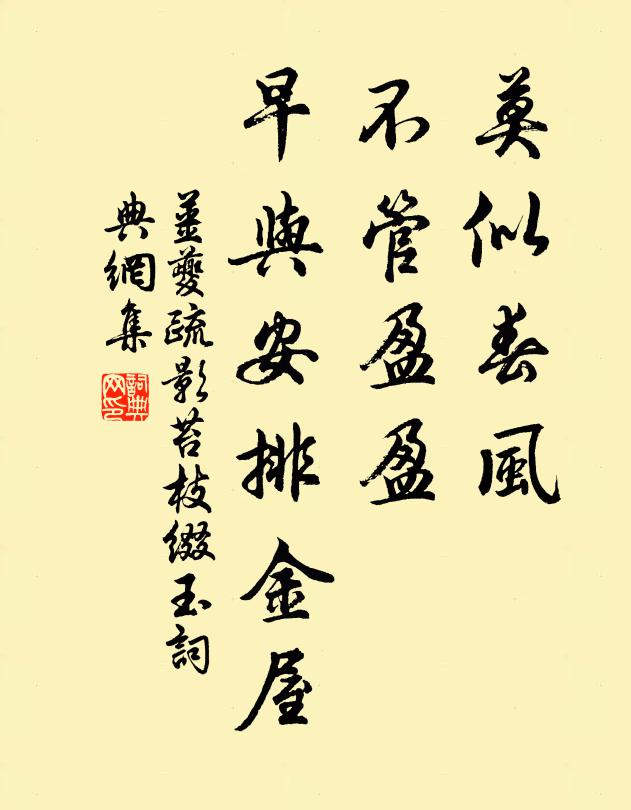 莫似春風
不管盈盈
早與安排金屋
姜夔疏影苔枝綴玉詞
典網集
詞典網印